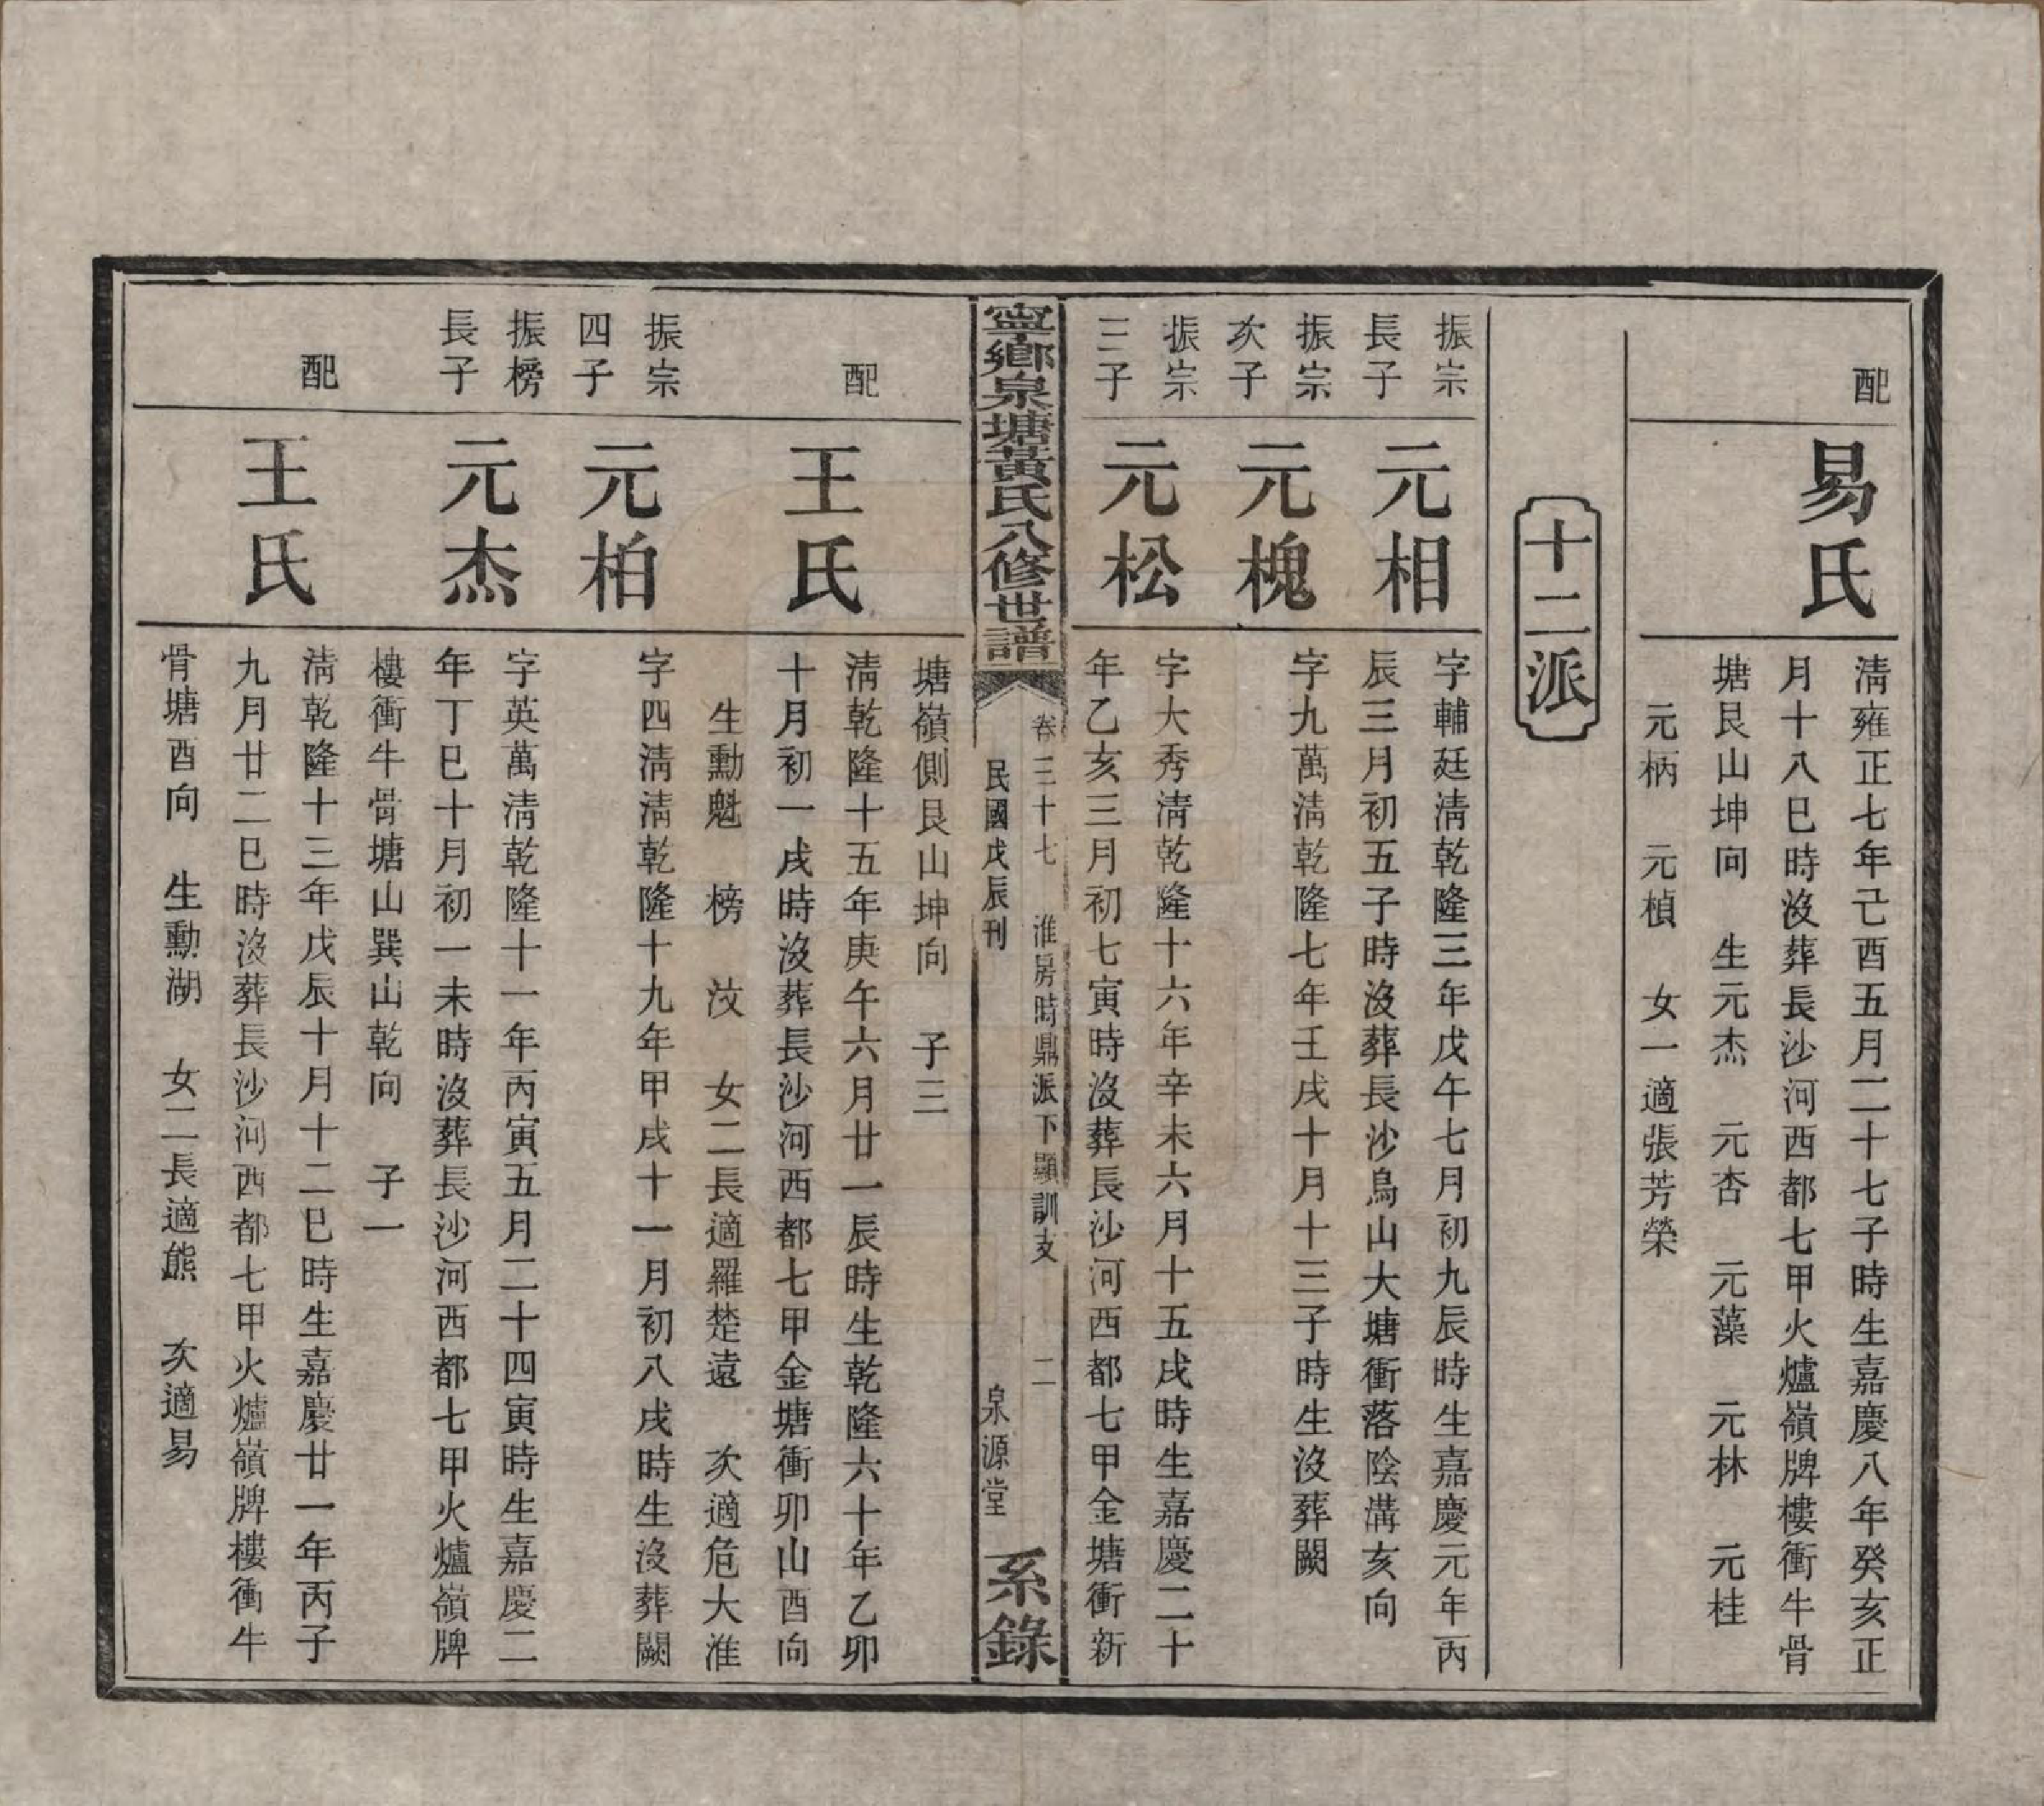 配
易氏
淸雍正七年己酉五月二十七子時生嘉慶八年癸亥正
月十八巳時沒葬長沙河西都七甲火爐嶺牌樓衝牛骨
塘艮山坤向　生元杰　元杏　元藻　元林　元桂
元柄　元楨　女一適張芳榮
十二派
振宗
長子
元相
字輔廷淸乾隆三年戊午七月初九辰時生嘉慶元年丙
辰三月初五子時沒葬長沙烏山大塘衝落陰溝亥向
振宗
次子
元槐
字九萬淸乾隆七年壬戌十月十三子時生沒葬闕
振宗
三子
元松
字大秀淸乾隆十六年辛未六月十五戌時生嘉慶二十
年乙亥三月初七寅時沒葬長沙河西都七甲金塘衝新
寧鄉泉塘黃氏八修世譜
卷三十七　淮房時鼎派下顯訓支　二
民國戊辰刊　泉源堂
系錄
塘嶺側艮山坤向　子三
配
王氏
淸乾隆十五年庚午六月廿一辰時生乾隆六十年乙卯
十月初一戌時沒葬長沙河西都七甲金塘衝卯山酉向
生勳魁　榜　汶　女二長適羅楚遠　次適危大淮
振宗
四子
元柏
字四淸淸乾隆十九年甲戌十一月初八戌時生沒葬闕
振榜
長子
元杰
字英萬淸乾隆十一年丙寅五月二十四寅時生嘉慶二
年丁巳十月初一未時沒葬長沙河西都七甲火爐嶺牌
樓衝牛骨塘山巽山乾向　子一
配
王氏
淸乾隆十三年戊辰十月十二巳時生嘉慶廿一年丙子
九月廿二巳時沒葬長沙河西都七甲火爐嶺牌樓衝牛
骨塘酉向　生勳湖　女二長適熊　次適易